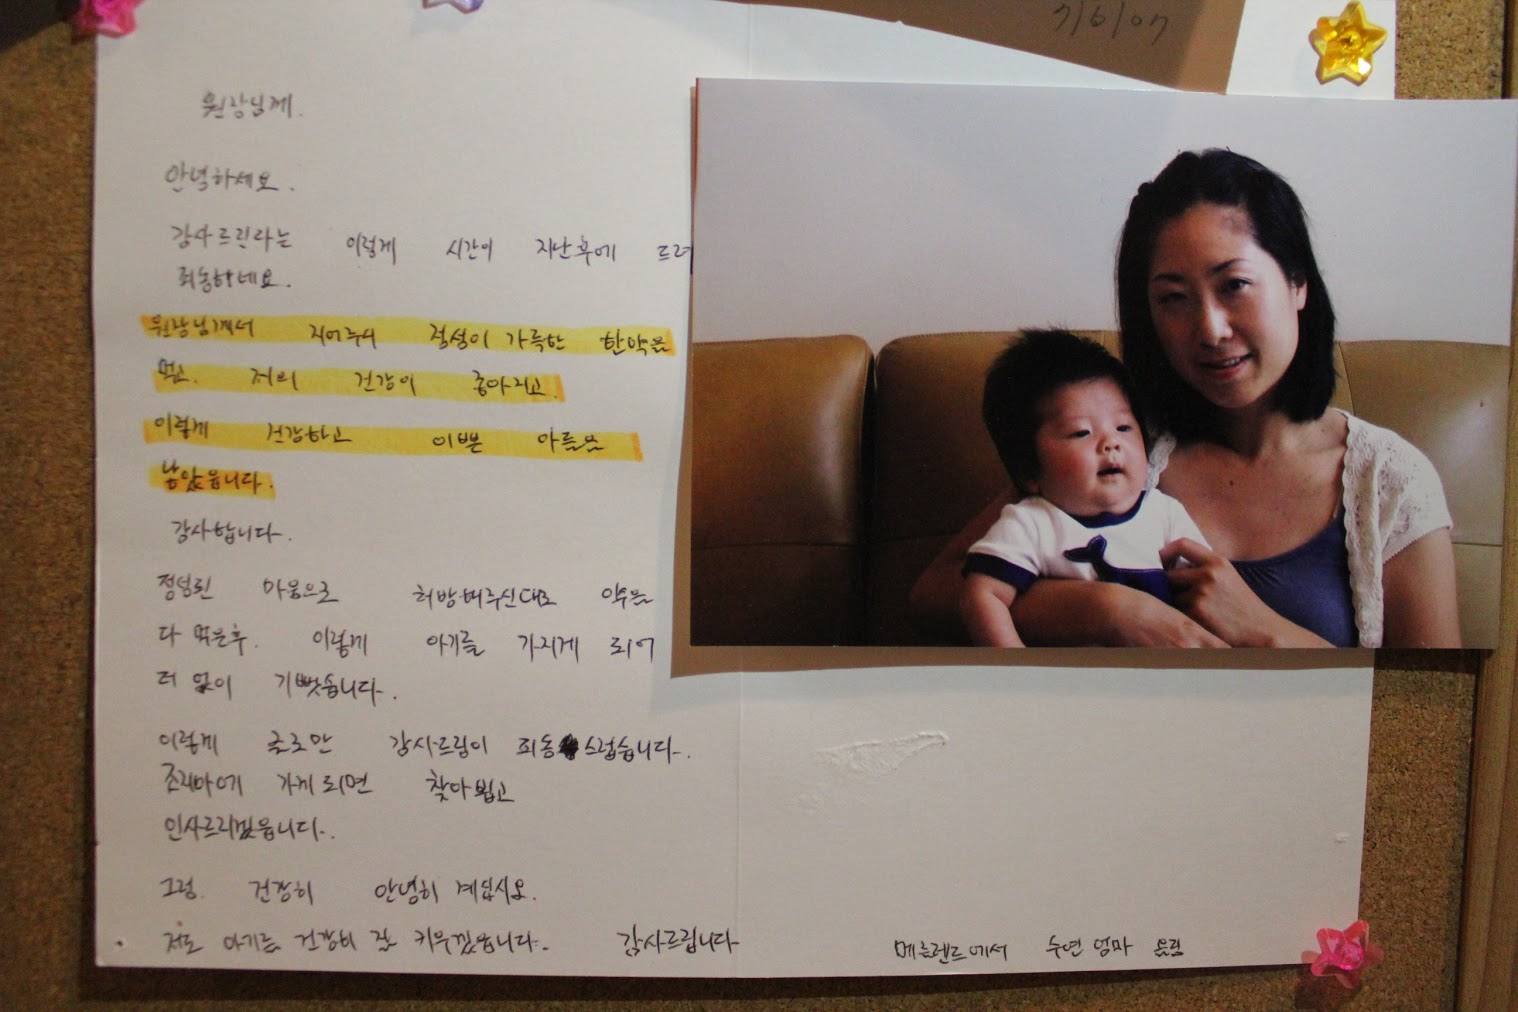 7/6/07
원장님께.
안녕하세요.
감사드린다는 이렇게 시간이 지난후에 드려
죄송하네요.
원장님께서 지어주서 정성이 가득한 한약을
먹고. 저의 건강이 좋아지고.
이렇게 건강하고 이쁜 아들을
낳았읍니다.
감사합니다.
마음으로 약을
다 먹은후. 이렇게 아기를 가지게 되어
더 없이 기뻣습니다.
이렇게 글로만 감사드림이 죄송스럽습니다.
가게되면 찾아뵙고
인사드리겠읍니다.
그럼. 건강히 안녕히 계십시오.
저도 아기를 건강히 잘 키우겠읍니다. 감사드립니다
메릴랜드에서 수연 엄마 올림